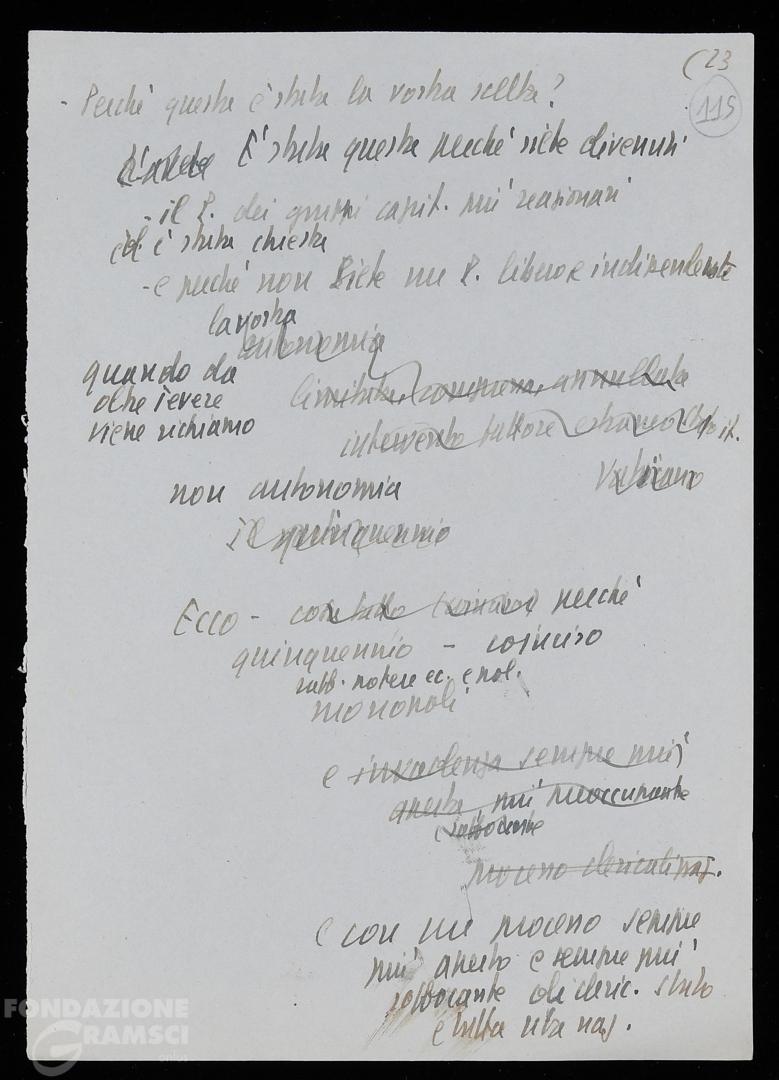 (23
115
- Perché questa è stata la vostra scelta?
È stata questa perché siete divenuti
- il P. dei gruppi capit. più reazionari
è stata chiesta
- e perché non siete un P. libero e indipendente
la vostra
autonomia
quando da
oltre Tevere
viene richiamo
limitata, compressa, annullata
intervento fattore estraneo Stato it.
Vaticano
non autonomia
il quinquennio
Ecco - perché
quinquennio - coinciso
raff. potere ec. e pol.
monopoli
e invadenza sempre più
aperta, più preoccupante
soffocante
processo clericalizzaz.
e con un processo sempre
più aperto e sempre più
soffocante di cleric. stato
e tutta vita naz.
FONDAZIONE
GRAMSCI
onlus